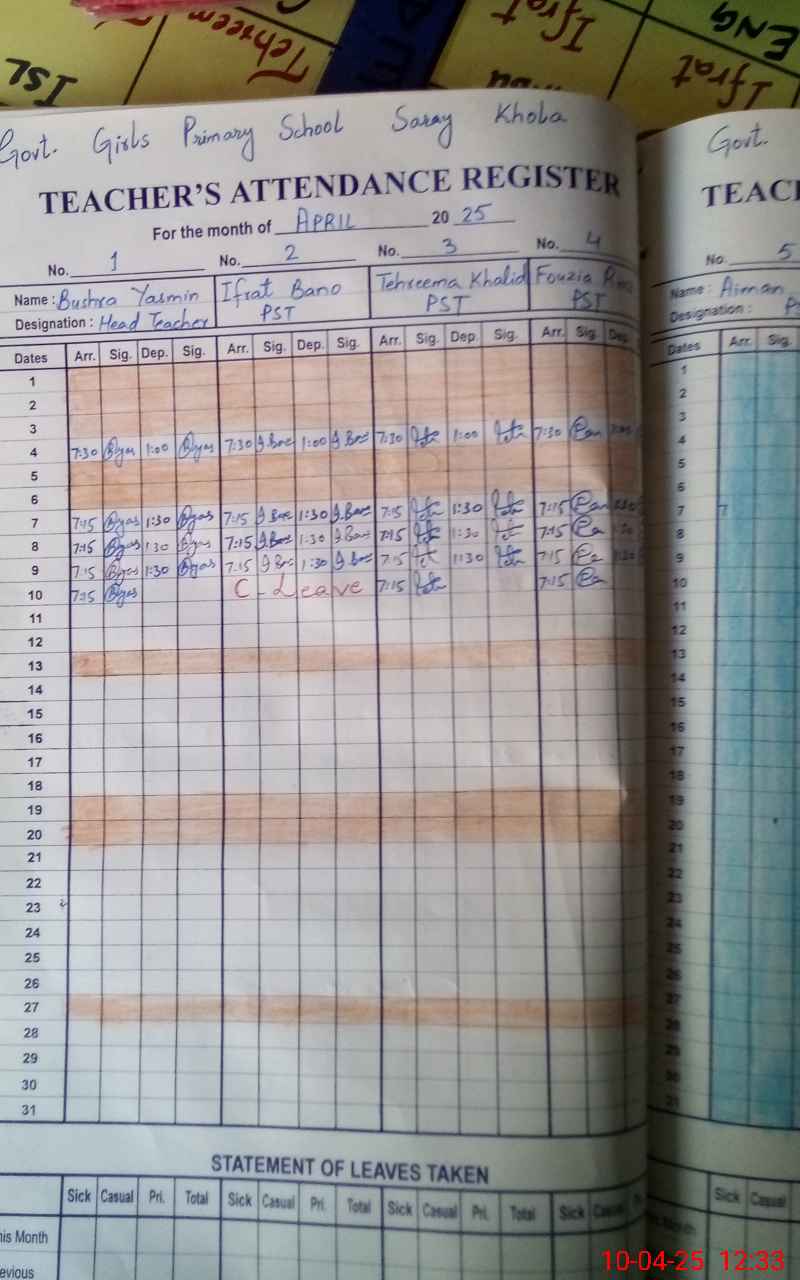 ISL
Tehreem
Ifrat
ENG
Ifrat
Govt. Girls Primary School Saray Khola
TEACHER'S ATTENDANCE REGISTER
For the month of APRIL 20 25
No. 1 No. 2 No. 3 No. 4
Name : Bushra Yasmin Ifrat Bano Tehreema Khalid Fouzia
Designation : Head Teacher PST PST PST
Dates Arr. Sig. Dep. Sig. Arr. Sig. Dep. Sig. Arr. Sig. Dep. Sig. Arr. Sig. Dep.
1
2
3
4 7:30 1:00 7:30 1:00 7:30 1:00 7:30
5
6
7 7:15 1:30 7:15 1:30 7:15 1:30 7:15
8 7:15 1:30 7:15 1:30 7:15 1:30 7:15
9 7:15 1:30 7:15 1:30 7:15 1:30 7:15
10 7:15 C-Leave 7:15 7:15
11
12
13
14
15
16
17
18
19
20
21
22
23
24
25
26
27
28
29
30
31
STATEMENT OF LEAVES TAKEN
Sick Casual Pri. Total Sick Casual Pri. Total Sick Casual Pri. Total Sick
his Month
evious
Govt.
TEACH
No. 5
Name : Aiman
Designation :
Dates Arr. Sig.
1
2
3
4
5
6
7
8
9
10
11
12
13
14
15
16
17
18
19
20
21
22
23
24
25
26
27
28
29
30
31
Sick Casual
10-04-25 12:33